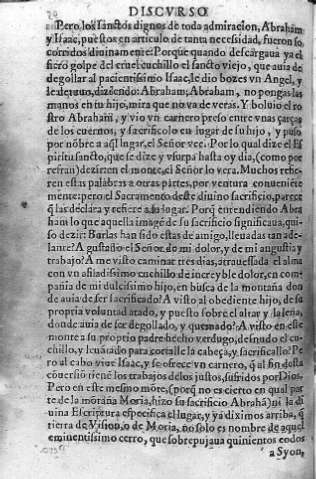 DISCVRSO
Pero los sanctos dignos de toda admiracion, Abraham
y Isaac, puestos en articulo de tanta necesidad, fueron so
corridos diuinamente: Porque quando descargaua ya el
fiero golpe del cruel cuchillo el sancto viejo, que auia de
degollar al pacientissimo Isaac, le dio bozes vn Angel, y
le detuuo, diziendo: Abraham, Abraham, no pongas las
manos en tu hijo, mira que no va de veras. Y boluio el ro
stro Abrahã, y vio vn carnero preso entre vnas çarças
de los cuernos, y sacrificolo en lugar de su hijo, y puso
por nõbre a aq̃l lugar, el Señor vee. Por lo qual dize el Es
piritu sancto, que se dize y vsurpa hasta oy dia, (como por
refran) dezir en el monte, el Señor lo vera. Muchos refie-
ren estas palabras a otras partes, por ventura conueniēte
mente: pero el Sacramento deste diuino sacrificio, parece
q̃ las declara y refiere a su lugar. Porq̃ entendiendo Abra
ham lo que aquella imagẽ de su sacrificio significaua, qui-
so dezir: Burlas han sido estas de amigo, lleuadas tan ade-
lante? A gustado el Señor de mi dolor, y de mi angustia y
trabajo? A me visto caminar tres dias, atrauessada el alma
con vn afiladissimo cuchillo de increyble dolor, en com-
pañia de mi dulcissimo hijo, en busca de la montaña don
de auia de ser sacrificado? A visto al obediente hijo, de su
propria voluntad atado, y puesto sobre el altar y la leña,
donde auia de ser degollado, y quemado? A visto en este
monte a su proprio padre hecho verdugo, desnudo el cu-
chillo, y leuantado para cortalle la cabeça, y sacrificallo? Pe
ro al cabo viue Isaac, y se ofrece vn carnero, q̃ al fin desta
conuersiõ tienē los trabajos de los justos, sufridos por Dios.
Pero en este mesmo mõte, (porq̃ no es cierto en qual par
te de la mõtaña Moria, hizo su sacrificio Abrahã) ni la di
uina Escriptura especifica el lugar, y ya diximos arriba, q̃
tierra de Vision, o de Moria, no solo es nombre de aquel
eminentissimo cerro, que sobrepujaua quinientos codos
a Syon,